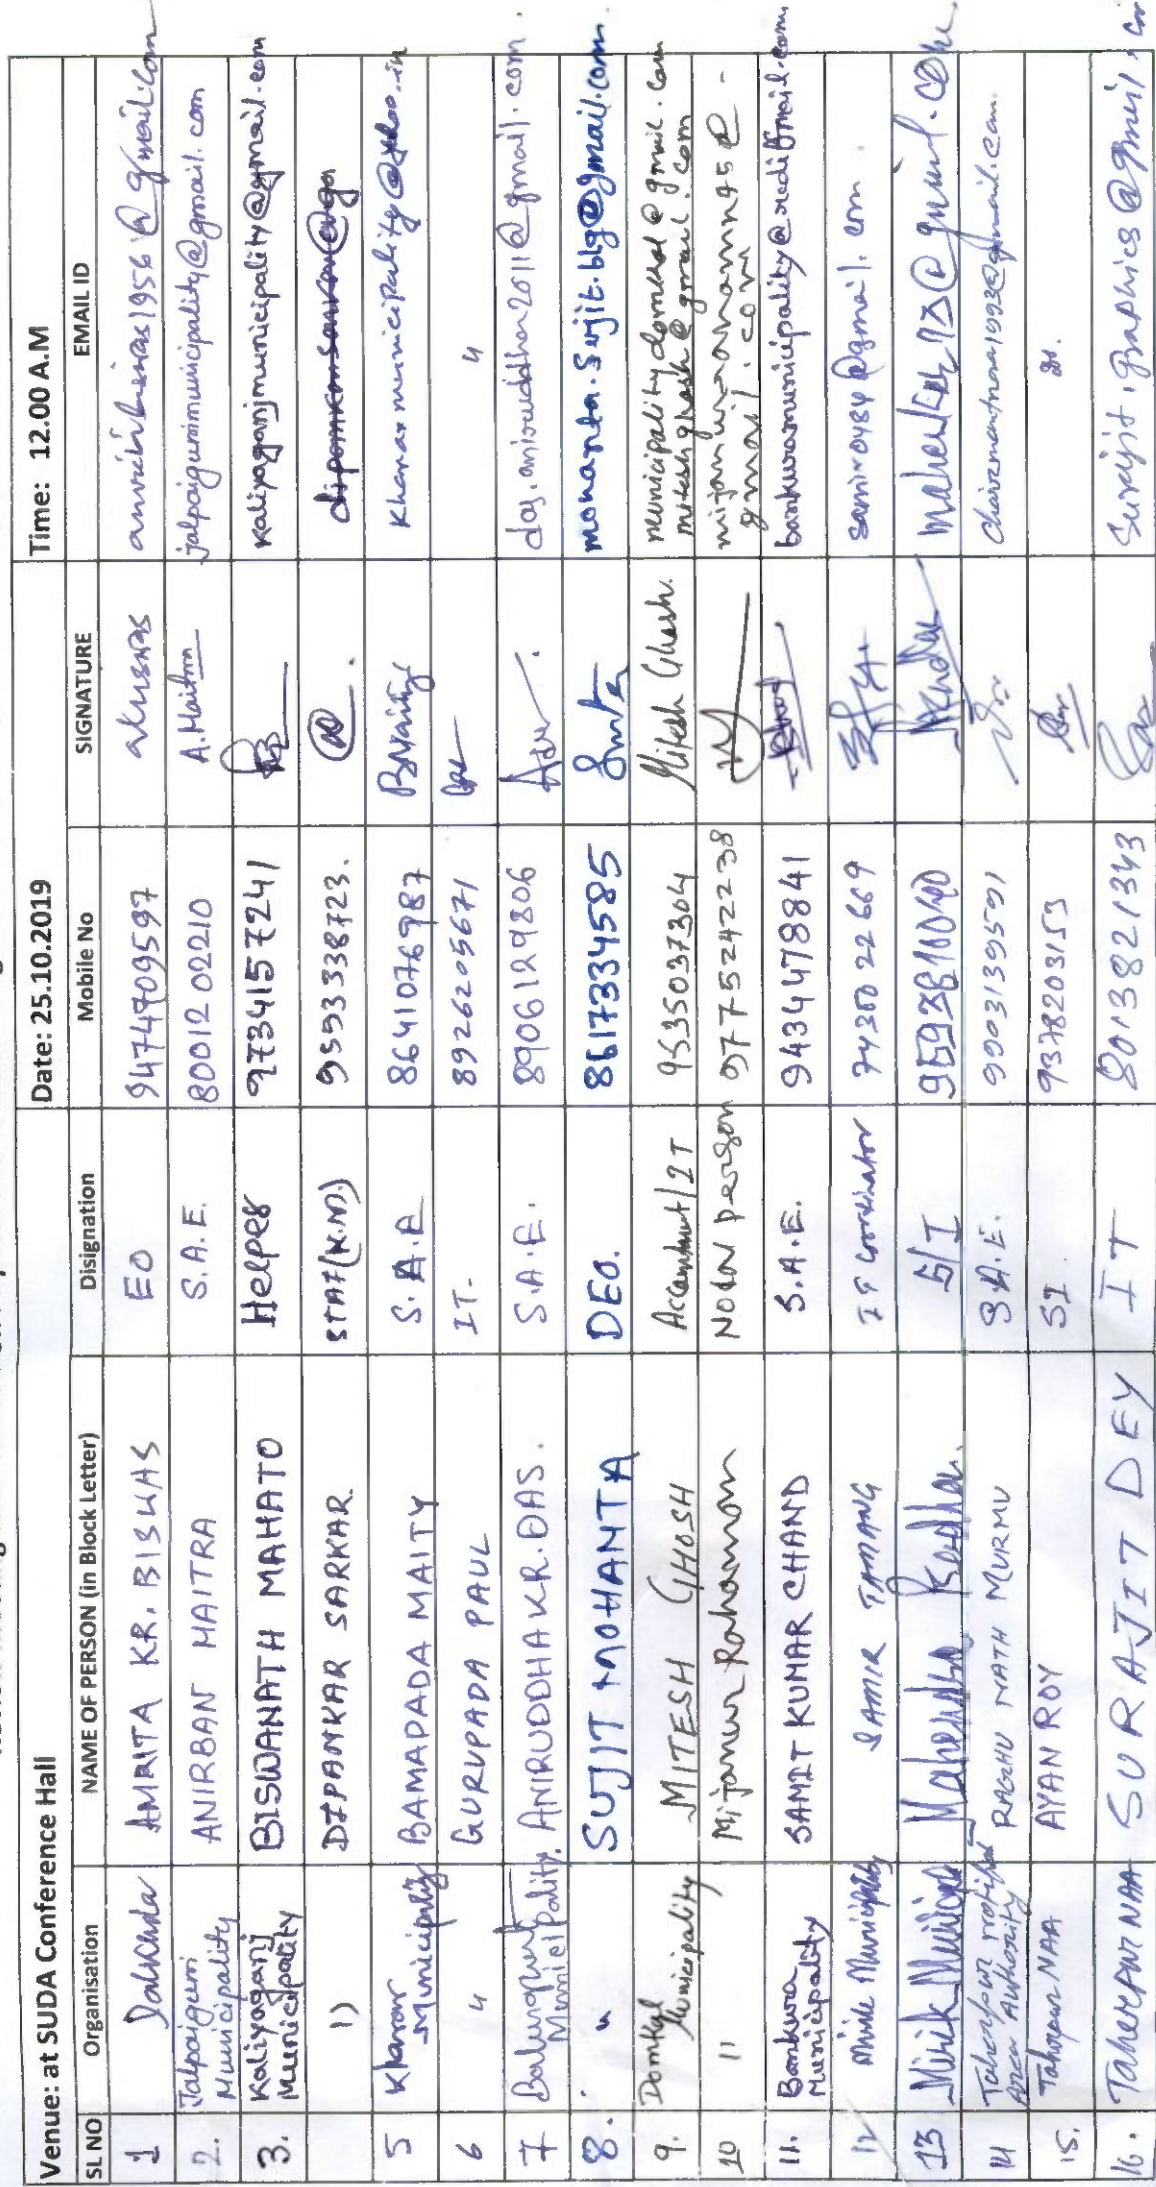 Venue: at SUDA Conference Hall Date: 25.10.2019 Time: 12.00 A.M
SL NO Organisation NAME OF PERSON (in Block Letter) Disignation Mobile No SIGNATURE EMAIL ID
1 Dalkhola AMRITA KR. BISWAS EO 9474709597
2. Jalpaiguri Municipality ANIRBAN MAITRA S.A.E. 8001202210 A.Maitra jalpaigurimunicipality@gmail.com
3. Kaliyaganj Municipality BISWANATH MAHATO Helper 9734157241 kaliyaganjmunicipality@gmail.com
11 DIPANKAR SARKAR STAF(K.M) 9593338723.
5 Kharar Municipality BAMAPADA MAITY S.A.E 8641076987 BMaity khararmunicipality@yahoo.in
6 " GURUPADA PAUL IT. 8926205671 "
7 Balurghat Municipality. ANIRUDDHA KR. DAS. S.A.E. 8906129806 das.aniruddha2011@gmail.com
8. " SUJIT MOHANTA DEO. 8617334585 mohanta.sujit.blg@gmail.com
9. Domkal Municipality MITESH GHOSH Accountant/IT 9535037304 Mitesh Ghosh. municipalitydomkal@gmail.com
miteshghosh@gmail.com
10 11 Mijanur Rahaman Nodal person 9775242238
gmail.com
11. Bankura Municipality SAMIT KUMAR CHAND S.A.E. 9434478841 bankuramunicipality@rediffmail.com
12 Mirik Municipality SAMIR TAMANG IT Cordinator 7430022669 samir0484@gmail.com
13 Mirik Municipal Mahendra S/I
14 Taherpur Notified Area Authority RAGHU NATH MURMU S.A.E. 9903139591
15. Taherpur NAA AYAN ROY SI 9378203153
16. TAHERPUR NAA SURAJIT DEY IT 8013821343 Surajit.graphics@gmail.com